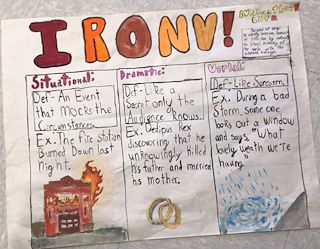 IRONY!
Situational:
Def- An Event
that Mocks the
Circumstances.
Ex. The Fire Station
Burned Down last
Night.
Dramatic:
Def- Like a
Secret only the
Audience Knows.
Ex. Oedipus Rex
discovering that he
unknowingly killed
his father and married
his mother.
Verbal:
Def- Like Sarcasm.
Ex. During a bad
Storm, some one
looks out a window
and says, "What
lovely weath we're
having"